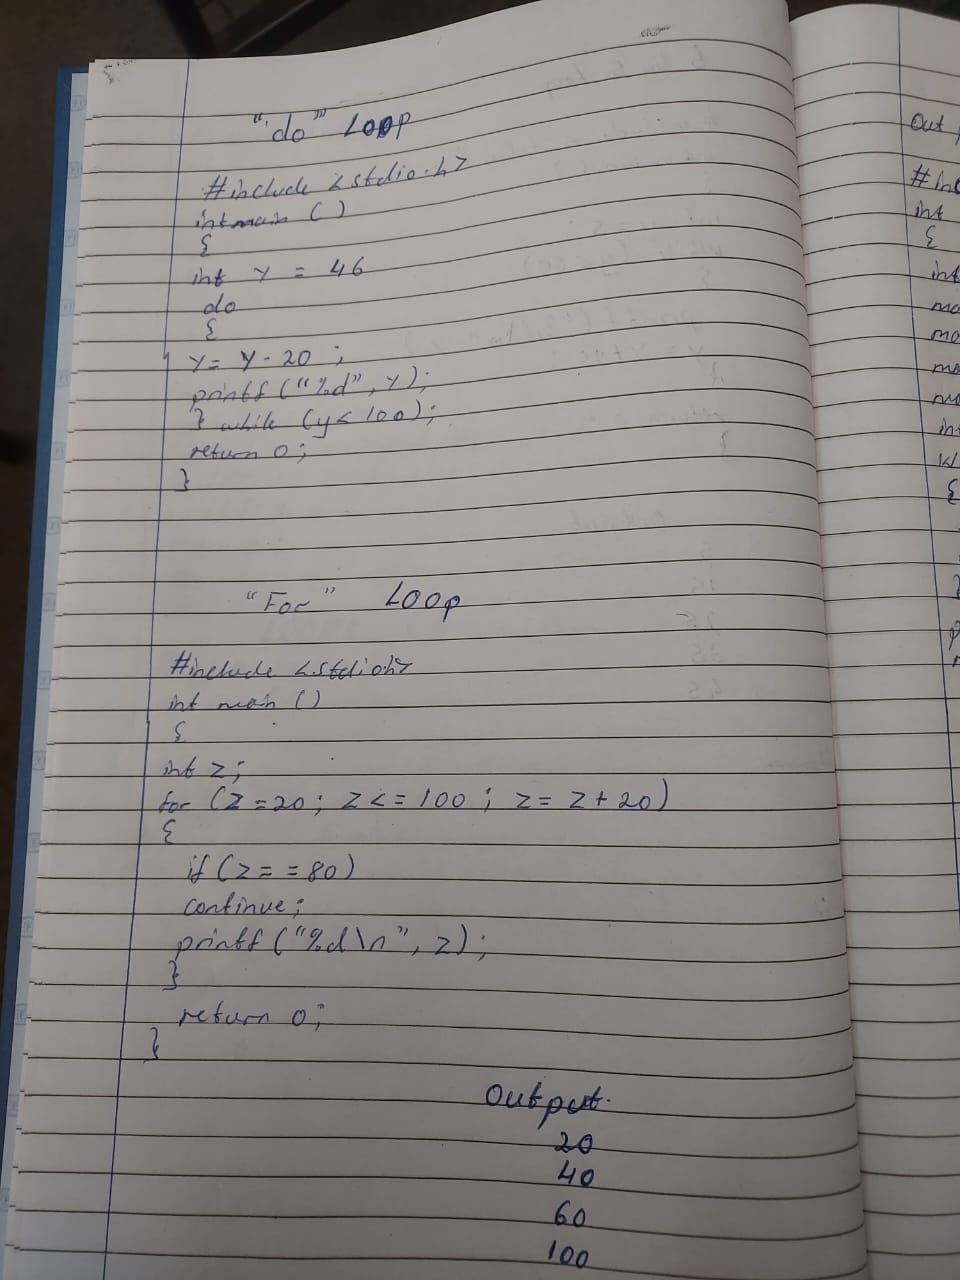 "do" Loop
#include <stdio.h>
int main ()
{
int y = 46
do
{
y = y - 20 ;
printf ("%d", y);
} while (y < 100);
return 0;
}
"For" Loop
#include <stdio.h>
int main ()
{
int z;
for (z = 20; z <= 100 ; z = z + 20)
{
if (z = = 80)
continue;
printf ("%d\n", z);
}
return 0;
}
Output.
20
40
60
100
Out
int
{
int
{